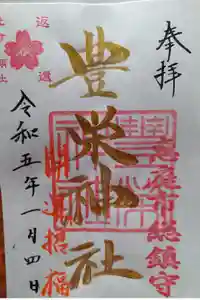 奉拝
恵庭市総鎮守
豊栄神社
開運招福
令和五年一月四日